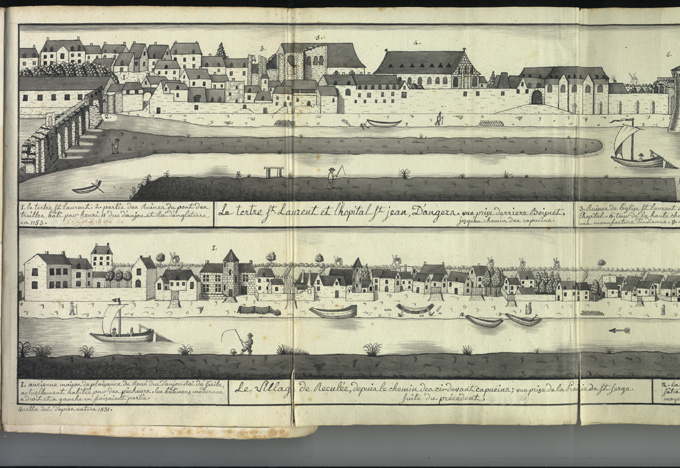 3.
3.
4.
6.
1. le tertre st laurent. 2. partie des Ruines du pont des
treilles bâti par henri II duc d'anjou et Roi d'angleterre,
en 1153.
Le tertre st Laurent et l'hopital st jean, D'angers. vue prise derriere Boisnet,
jusqu'au chemin des capucins.
3. Ruines de l'eglise st laurent
l'hopital. 6. tour de la haute cha
1.
1. ancienne maison de plaisance de René duc d'anjou Roi de Sicile,
actuellement habitée par des pêcheurs. les bâtimens
a droit et a gauche en faisaient partie.
Le Village de Reculée, depuis le chemin des ci-devant capucins; vue prise de la Prairie de st Serge.
suite du précédent.
del. d'après nature. 1831.